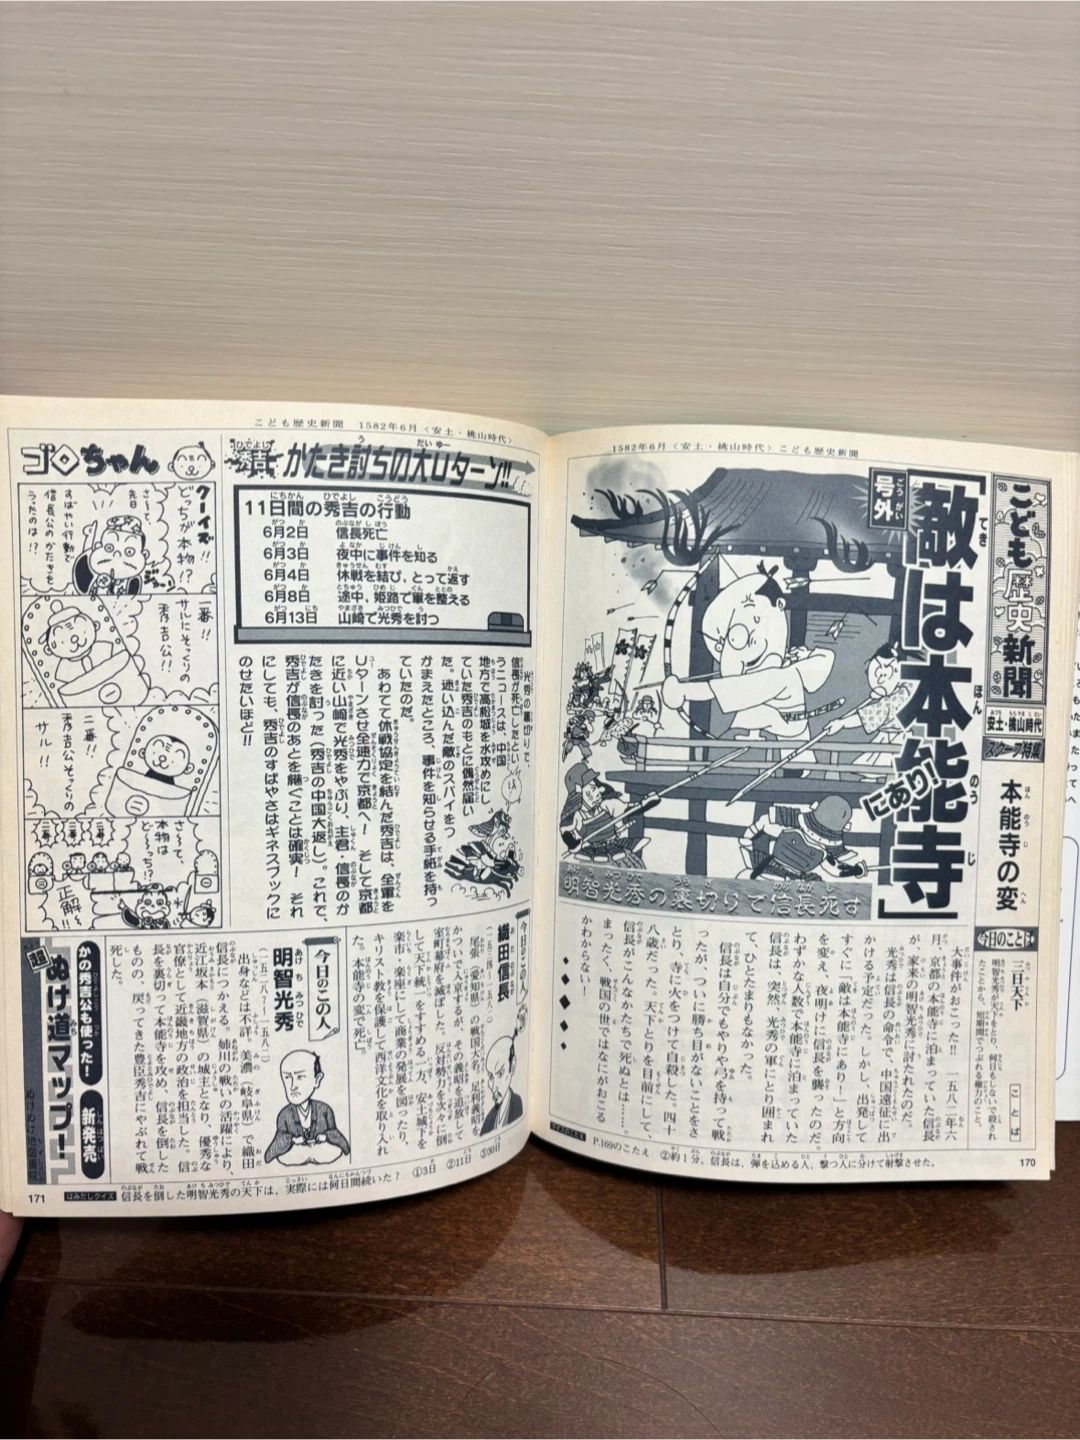 1582年6月〈安土・桃山時代〉こども歴史新聞
こども歴史新聞
安土・桃山時代
スクープ特集
本能寺の変
号外
「敵は本能寺
にあり!」
明智光秀の裏切りで信長死す
今日のことば
三日天下
明智光秀が天下をとり、何日もしないで殺され
たことから、短期間でつぶれる権力のこと。
大事件がおこった!! 一五八二年六
月、京都の本能寺に泊まっていた信長
が、家来の明智光秀に討たれたのだ。
光秀は信長の命令で、中国遠征に出
かける予定だった。しかし、出発して
すぐに「敵は本能寺にあり!」と方向
を変え、夜明けに信長を襲ったのだ。
わずかな人数で本能寺に泊まっていた
信長は、突然、光秀の軍にとり囲まれ
て、ひとたまりもなかった。
信長は自分でもやりや弓を持って戦
ったが、ついに勝ち目がないことをさ
とり、寺に火をつけて自殺した。四十
八歳だった。天下とりを目前にして、
信長がこんなかたちで死ぬとは……。
まったく、戦国の世ではなにがおこる
かわからない!
P.169のこたえ ②約1分。信長は、弾を込める人、撃つ人に分けて射撃させた。
170
こども歴史新聞 1582年6月〈安土・桃山時代〉
秀吉 かたき討ちの大Uターン!!
11日間の秀吉の行動
6月2日 信長死亡
6月3日 夜中に事件を知る
6月4日 休戦を結び、とって返す
6月8日 途中、姫路で軍を整える
6月13日 山崎で光秀を討つ
光秀の裏切りで、
信長が死亡したとい
うニュースは、中国
地方で高松城を水攻めにし
ていた秀吉のもとに偶然届い
た。迷い込んだ敵のスパイをつ
かまえたところ、事件を知らせる手紙を持っ
ていたのだ。
あわてて休戦協定を結んだ秀吉は、全軍を
Uターンさせ全速力で京都へ! そして京都
に近い山崎で光秀をやぶり、主君・信長のか
たきを討った(秀吉の中国大返し)。これで、
秀吉が信長のあとを継ぐことは確実! それ
にしても、秀吉のすばやさはギネスブックに
のせたいほど!!
今日のこの人
織田信長
(一五三四〜一五八二)
尾張(愛知県)の戦国大名。足利義昭を
かついで入京するが、その義昭を追放して
室町幕府を滅ぼした。反対勢力を次々に倒
して天下統一をすすめる一方、安土城下を
楽市・楽座にして商業の発展を図ったり、
キリスト教を保護して西洋文化を取り入れ
た。本能寺の変で死亡。
今日のこの人
明智光秀
(一五二八?〜一五八二)
出身などは不詳。美濃(岐阜県)で織田
信長につかえる。姉川の戦いの活躍により、
近江坂本(滋賀県)の城主となり、優秀な
官僚として近畿地方の政治を担当した。信
長を裏切って本能寺を攻め、信長を倒した
ものの、戻ってきた豊臣秀吉にやぶれて戦
死した。
ゴロちゃん
クーイズ!!
どっちが本物!?
さーて、
先日
すばやい行動で
信長公のかたきを
うったのは!?
ジャーン
一番!!
サルにそっくりの
秀吉公!!
二番!!
秀吉公そっくりの
サル!!
さ〜て、
本物は
ど〜っち!?
二番!
一番!
二番!
正解!!
かの秀吉公も使った!
超ぬけ道マップ!
新発売
ぬけぬけ地図書院
はみだしクイズ 信長を倒した明智光秀の天下は、実際には何日間続いた? ①3日 ②11日 ③30日
171